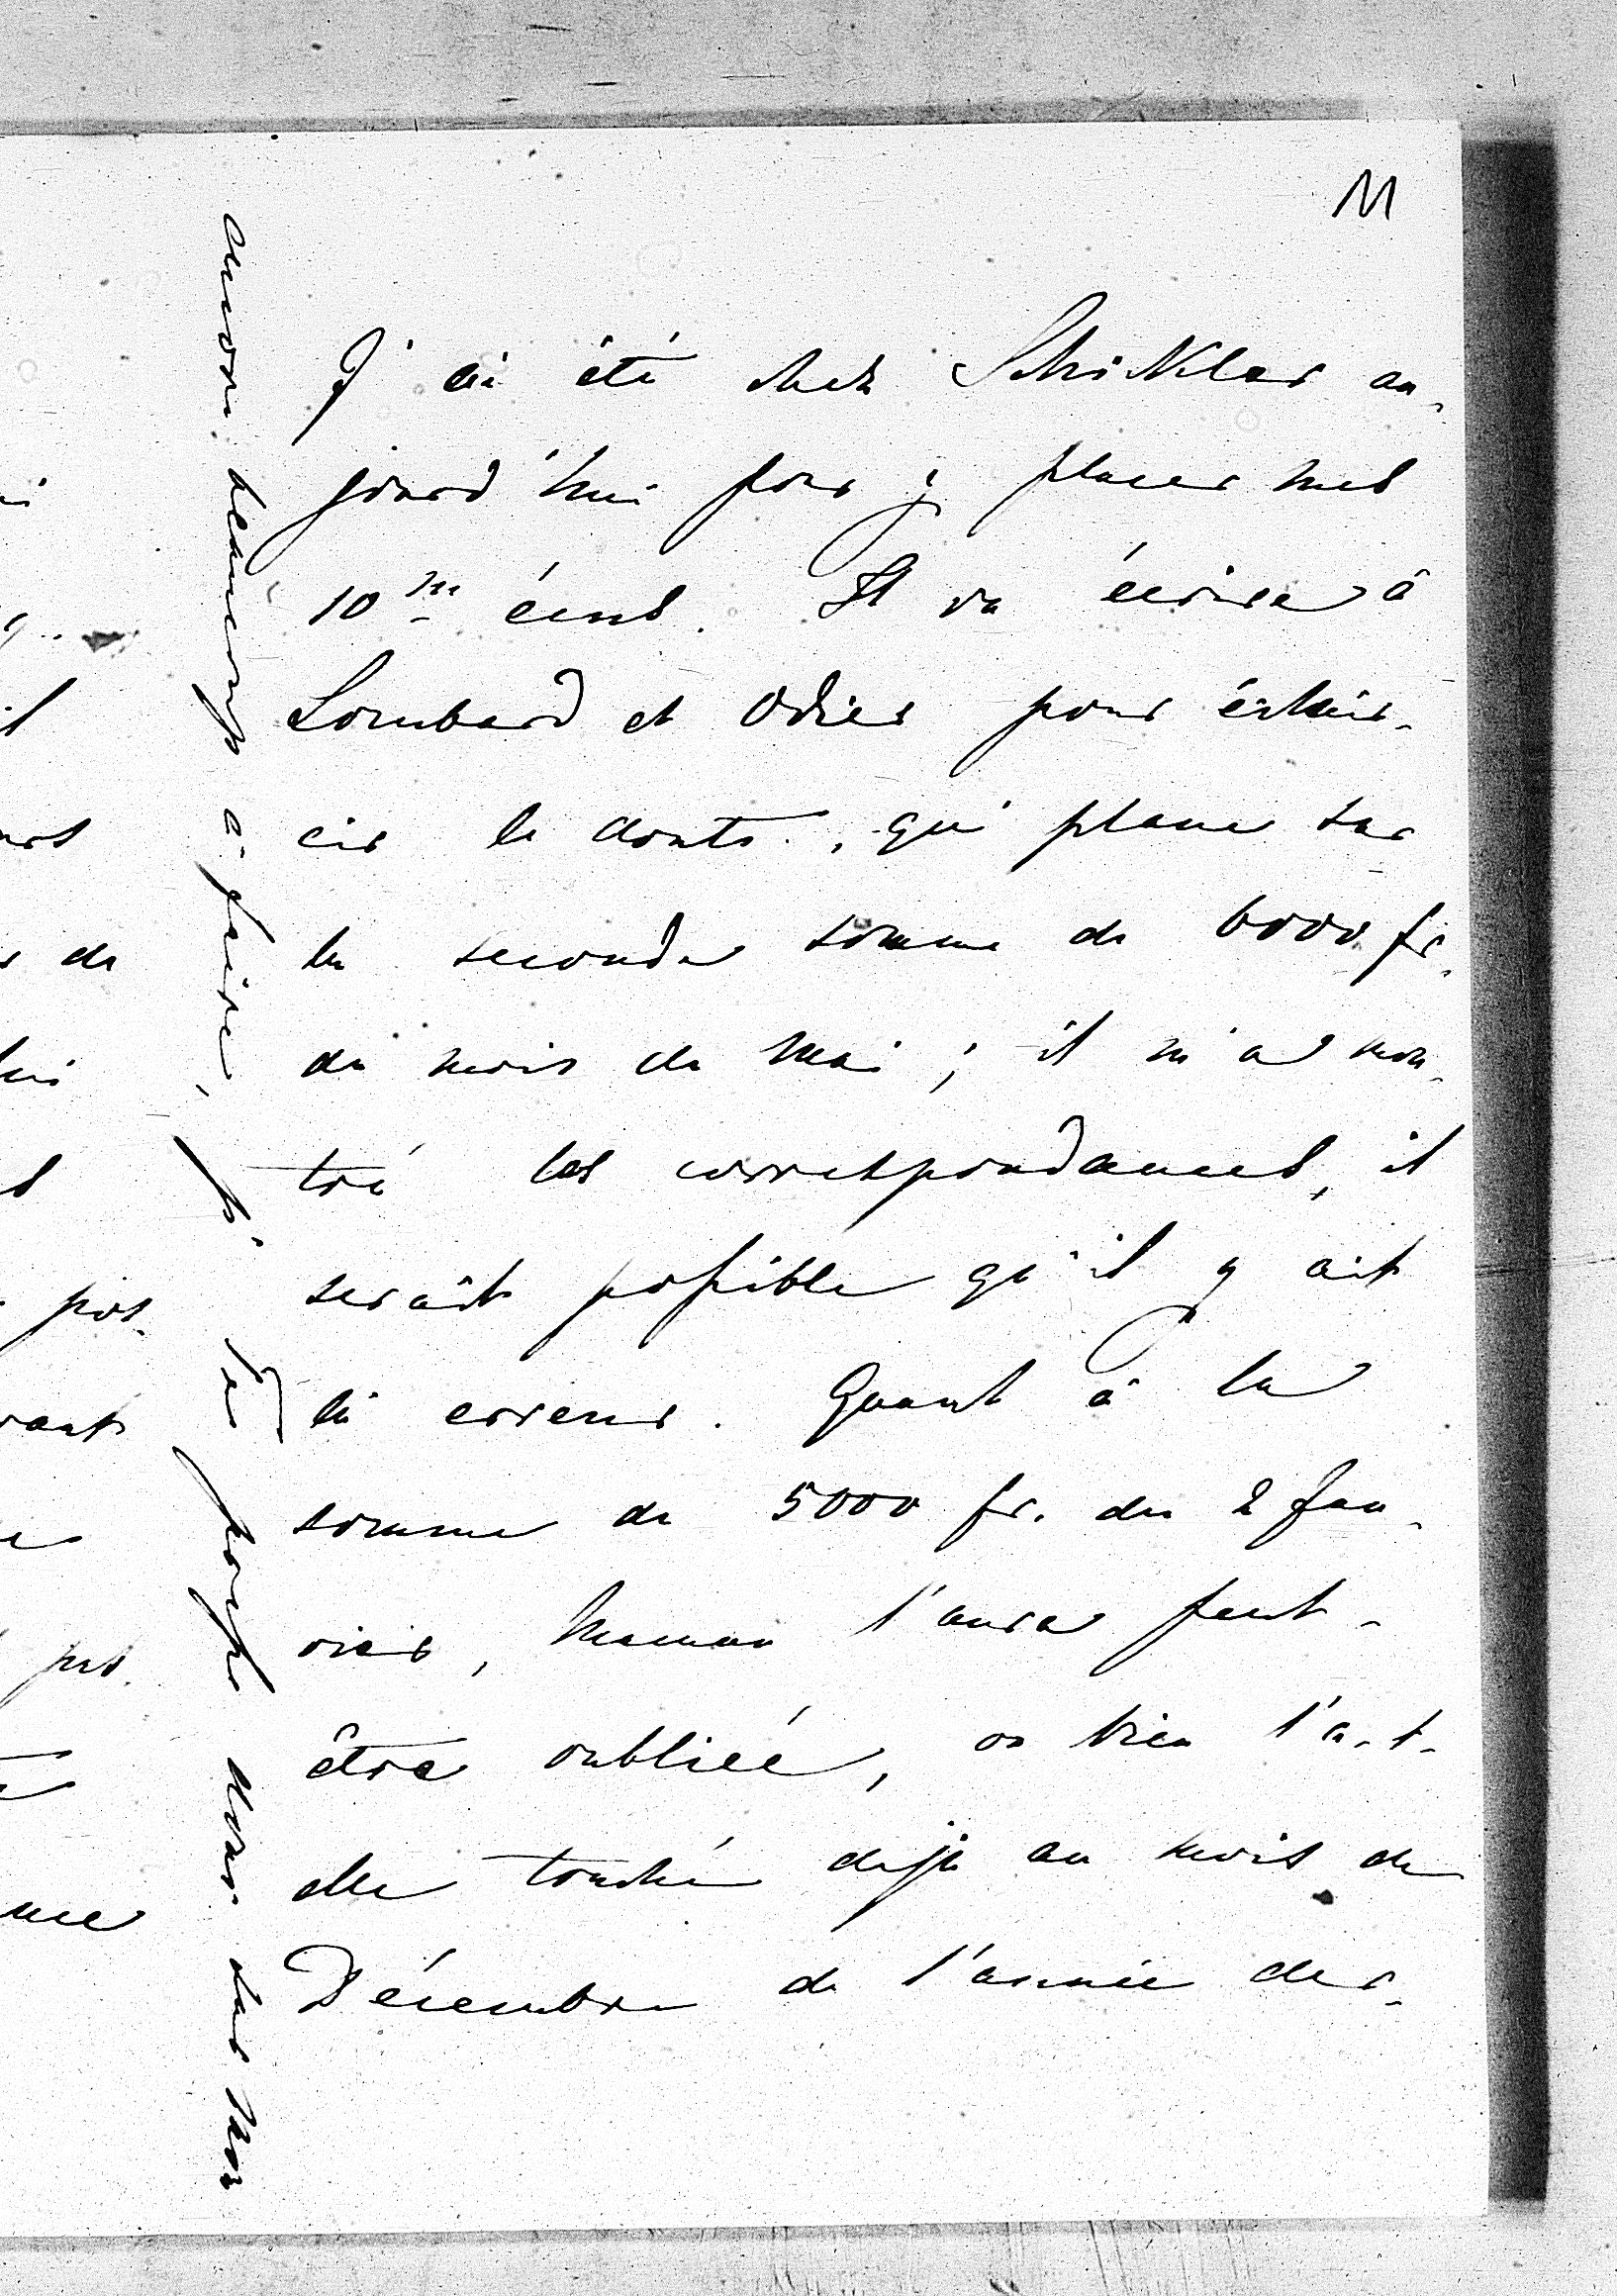 11
J'ai été chez Schikler au-
jourd'hui pour y placer mes
10m écus. Il va écrire à
Lombard et Odier pour éclair-
cir le doute, qui plane sur
la seconde somme de 6000 fr.
du mois de Mai; il m'a mon-
tré les correspondances, il
serait possible qu'il y ait
là erreur. Quant à la
somme de 5000 fr. du 2 Jan-
vier, Maman l'aura peut-
être oubliée, ou bien l'a-t-
elle touché déjà au mois de
Décembre de l'année der-
encore beaucoup à faire,